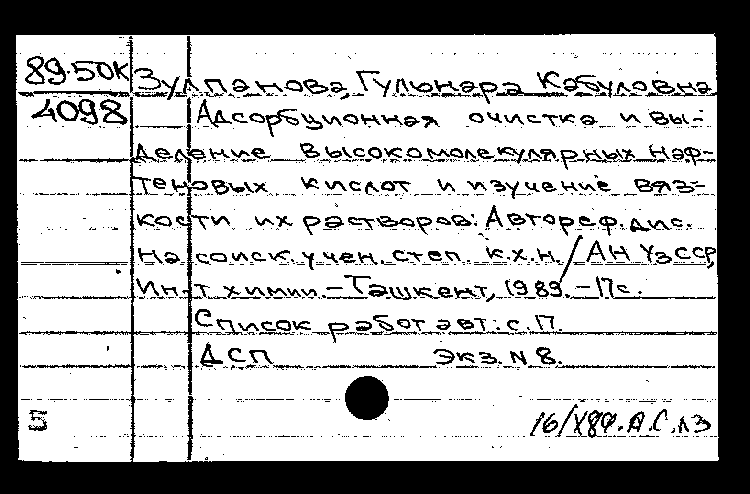 89-50К Зулпанова, Гульнара Кабуловна
4098 Адсорбционная очистка и вы-
деление высокомолекулярных наф-
теновых кислот и изучение вяз-
кости их растворов: Автореф. дис.
на соиск. учен. степ. к.х.н. / АН УзССР,
Ин-т химии. - Ташкент, 1989. - 17с.
Список работ авт.: с. 17.
ДСП Экз. N 8.
5 16/X89. А.С. л3